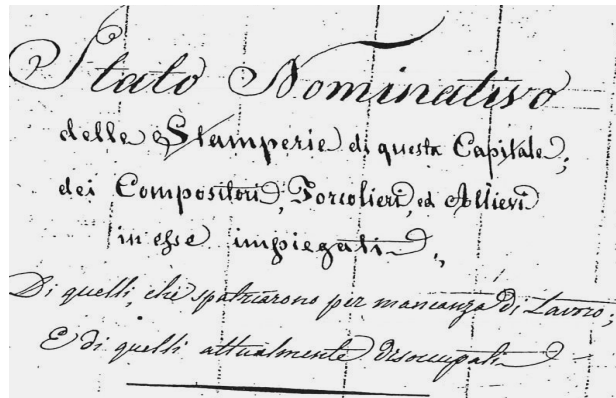 Stato Nominativo
delle Stamperie di questa Capitale;
dei Compositori, Torcolieri, ed Allievi
in esse impiegati,
Di quelli, che spatriarono per mancanza di Lavoro;
E di quelli attualmente disoccupati